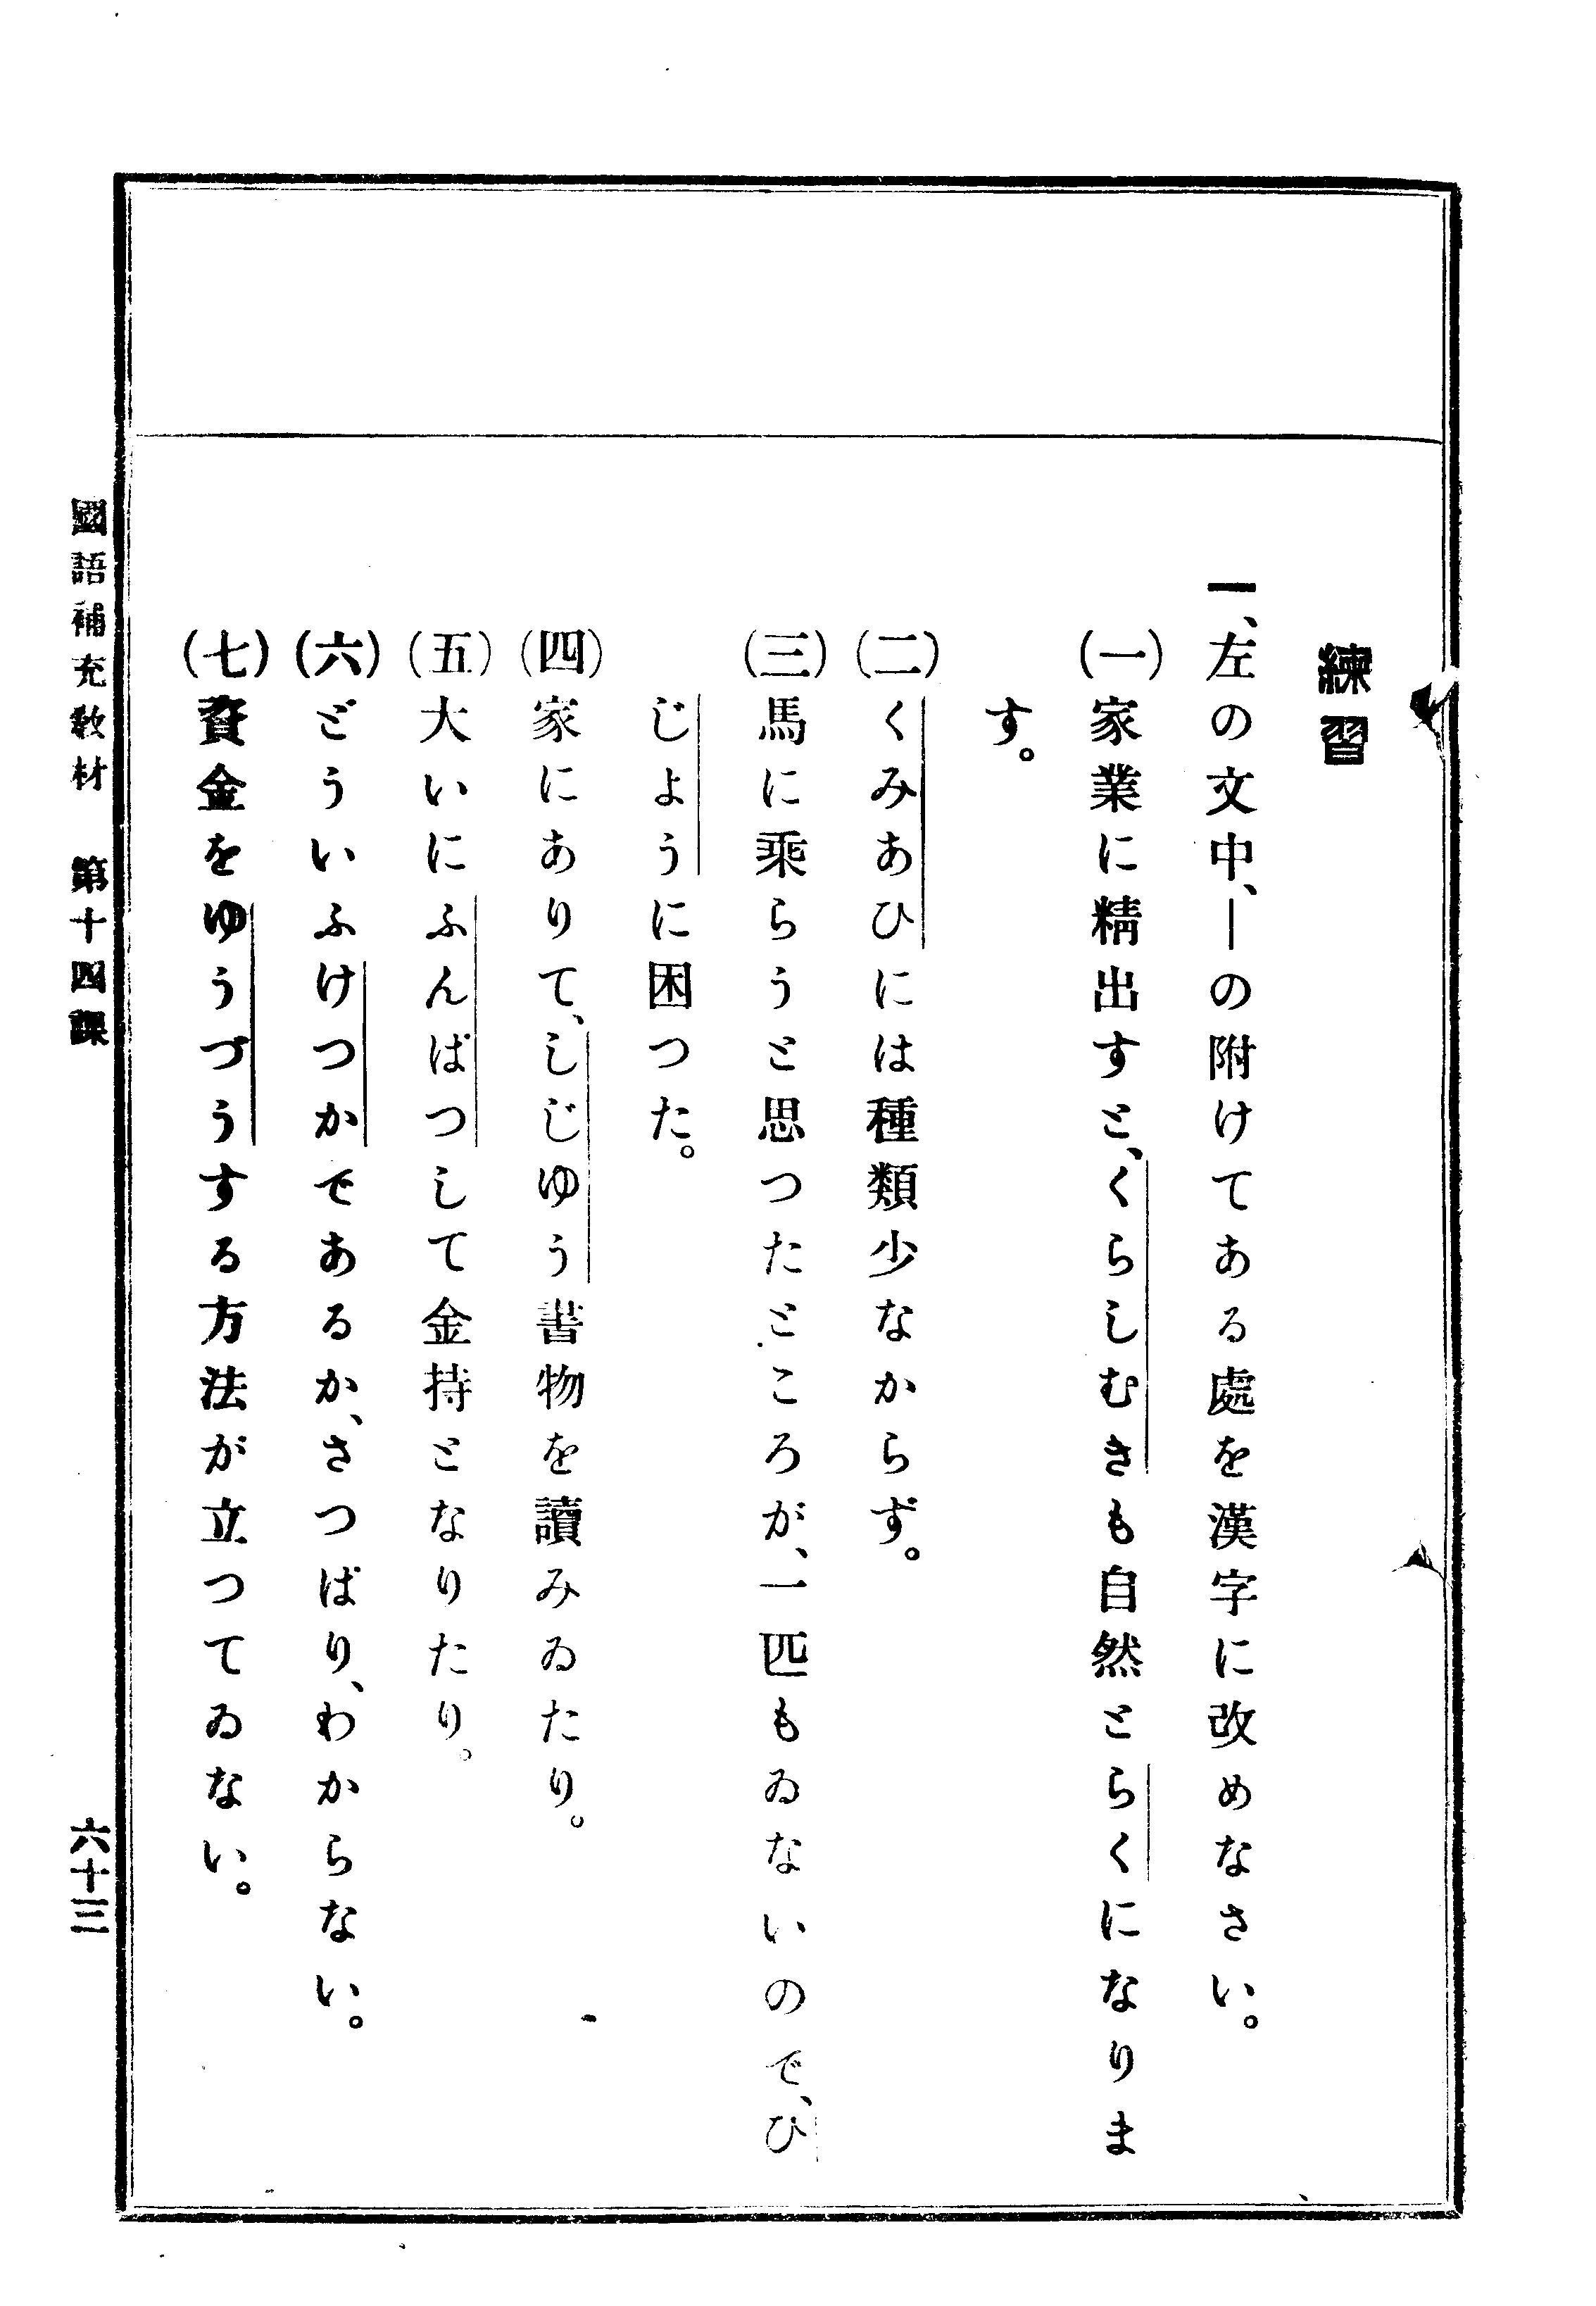 練習
一、左の文中、―の附けてある處を漢字に改めなさい。
(一)家業に精出すと、くらしむきも自然とらくになりま
す。
(二)くみあひには種類少なからず。
(三)馬に乘らうと思つたところが、一匹もゐないので、ひ
じょうに困つた。
(四)家にありて、しじゆう書物を讀みゐたり。
(五)大いにふんばつして金持となりたり。
(六)どういふけつかであるか、さつぱり、わからない。
(七)資金をゆうづうする方法が立つてゐない。
國語補充教材 第十四課
六十三